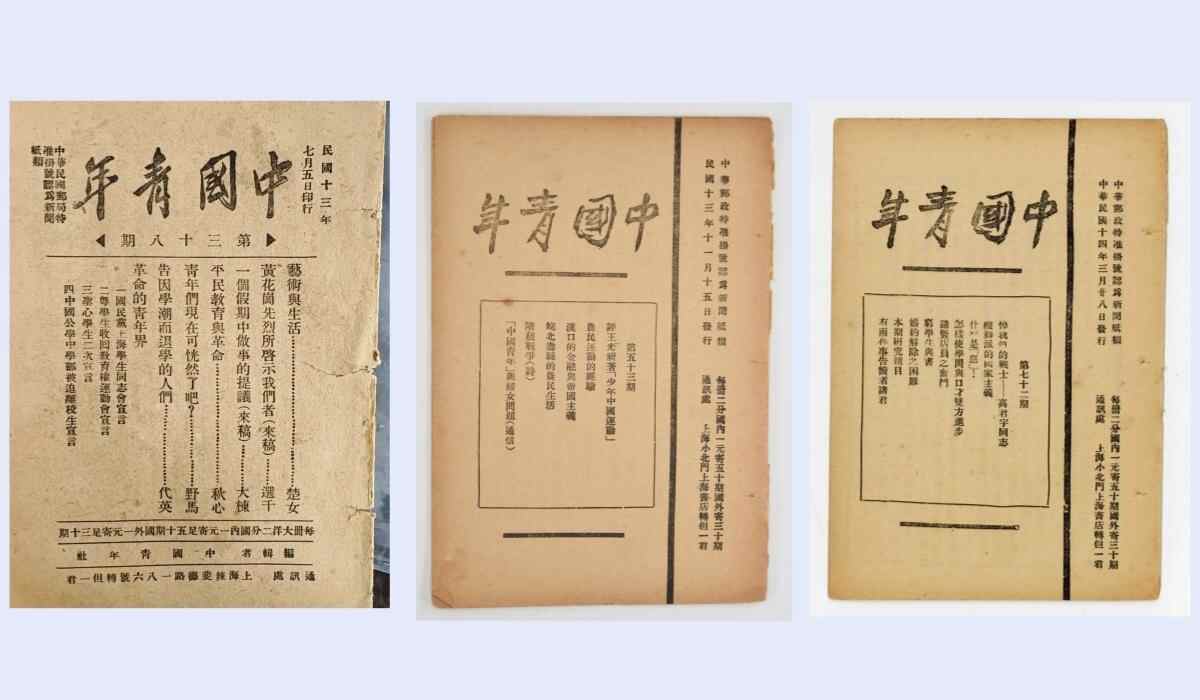 民國十三年
七月五日印行
中國青年
中華民國郵局特
准掛號認爲新聞
紙類
第三十八期
藝術與生活……楚女
黃花崗先烈所啓示我們者(來稿)……選干
一個假期中做事的提議(來稿)……大棟
平民教育與革命……秋心
青年們現在可恍然了吧?……野馬
告因學潮而退學的人們……代英
革命的青年界
一國民黨上海學生同志會宣言
二粵學生收回教育權運動會宣言
三聖心學生二次宣言
四中國公學中學部被迫離校生宣言
每冊大洋二分國內一元寄足五十期國外一元寄足三十期
編輯者 中國青年社
通訊處 上海辣斐德路一八六號轉但一君
中華郵政特准掛號認爲新聞紙類
民國十三年十一月十五日發行
每冊二分國內一元寄五十期國外寄三十期
通訊處 上海小北門上海書店轉但一君
中國青年
第五十三期
評王光祈著「少年中國運動」
農民運動的經驗
漢口的金融與帝國主義
皖北壽縣的農民生活
隋赧戰爭(詩)
「中國青年」與婦女問題(通信)
中華郵政特准掛號認爲新聞紙類
中華民國十四年三月廿八日發行
每冊二分國內一元寄五十期國外寄三十期
通訊處 上海小北門上海書店轉但一君
中國青年
第七十二期
悼我們的戰士——高君宇同志
醒獅派的國家主義
什麽是「惡」?
怎樣使學問與口才雙方進步
諸暨店員之奮鬥
窮學生與書
婚約解除之困難
本期研究題目
有兩件事告讀者諸君